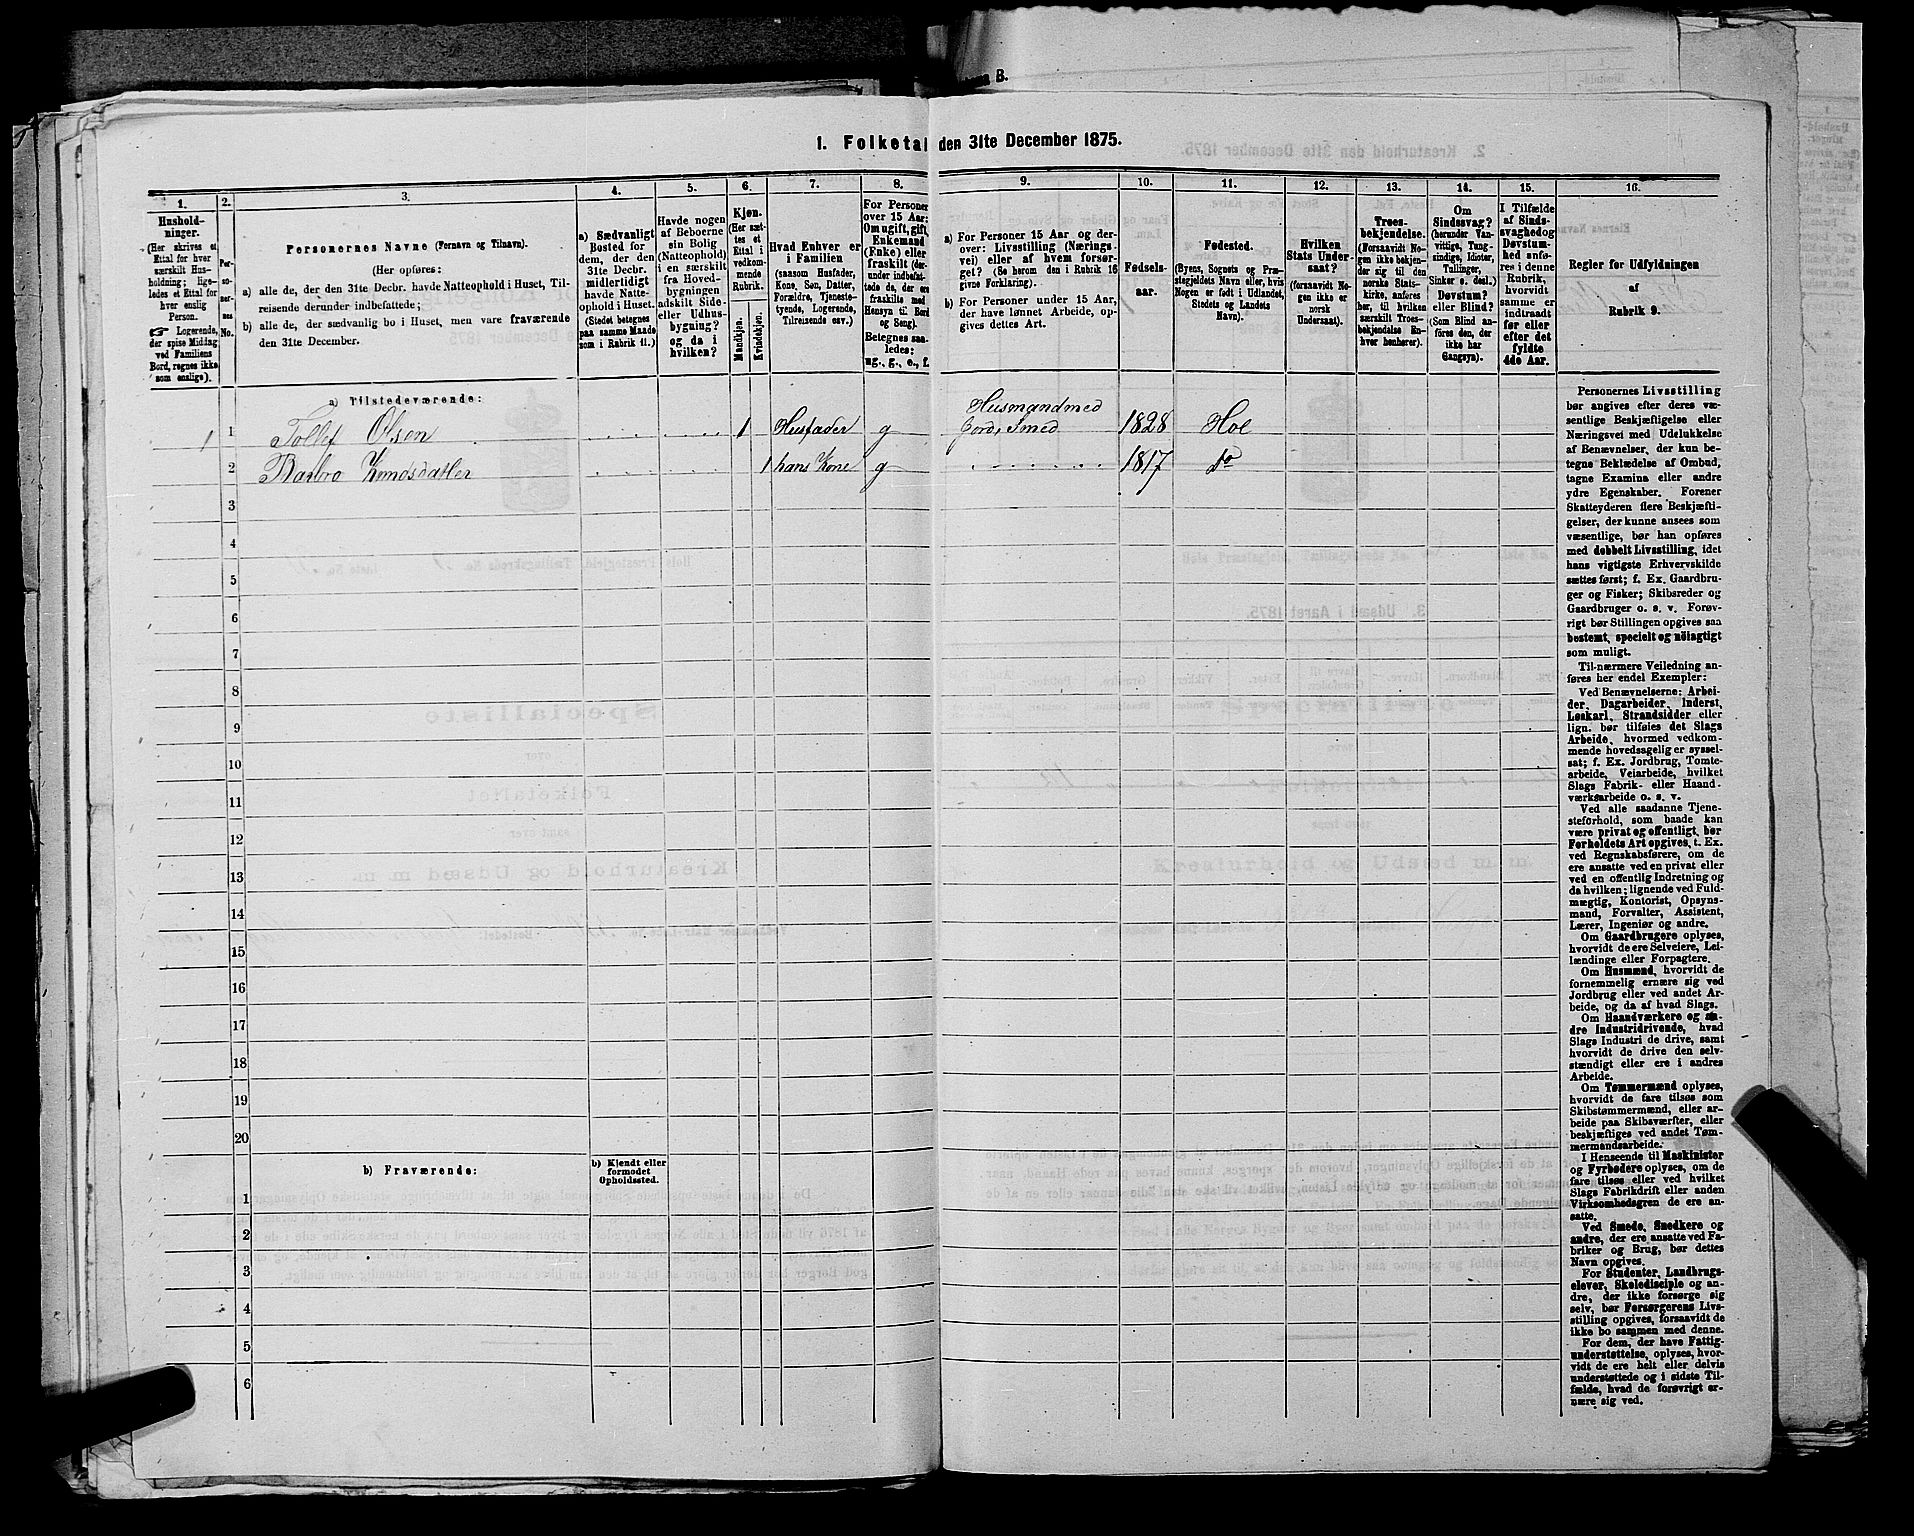 B.
1. Folketal den 31te December 1875.
1.
Hushold-
ninger.
(Her skrives et
Ettal for hver
særskilt Hus-
holdning; lige-
ledes et Ettal for
hver enslig
Person.
☞ Logerende,
der spise Middag
ved Familiens
Bord, regnes ikke
som enslige).
2.
Per-
so-
ner-
nes
No.
3.
Personernes Navne (Fornavn og Tilnavn).
(Her opføres:
a) alle de, der den 31te Decbr. havde Natteophold i Huset, Til-
reisende derunder indbefattede;
b) alle de, der sædvanlig bo i Huset, men vare fraværende
den 31te December.
4.
a) Sædvanligt
Bosted for
dem, der den
31te Decbr.
midlertidigt
havde Natte-
ophold i Huset.
(Stedet betegnes
paa samme Maade
som i Rubrik 11.)
5.
Havde nogen
af Beboerne
sin Bolig
(Natteophold)
i en særskilt
fra Hoved-
bygningen
adskilt Side-
eller Udhus-
bygning?
og da i
hvilken?
6.
Kjøn.
(Her sæt-
tes et
Ettal i
vedkom-
mende
Rubrik.
Mandkjøn.
Kvindekjøn.
7.
Hvad Enhver er
i Familien
(saasom Husfader,
Kone, Søn, Datter,
Forældre, Tjeneste-
tyende, Logerende,
Tilreisende osv.)
8.
For Personer
over 15 Aar:
Om ugift, gift,
Enkemand
(Enke) eller
fraskilt (der-
under indbefat-
tede de, der ere
fraskilte med
Hensyn til Bord
og Seng).
Betegnes saa-
ledes:
ug., g., e., f.
9.
a) For Personer 15 Aar og der-
over: Livsstilling (Nærings-
vei) eller af hvem forsør-
get? (Se herom den i Rubrik 16
givne Forklaring).
b) For Personer under 15 Aar,
der have lønnet Arbeide, op-
gives dettes Art.
10.
Fødsels-
aar.
11.
Fødested.
(Byens, Sognets og Præ-
stegjeldets Navn eller, hvis
Nogen er født i Udlandet,
Stedets og Landets
Navn).
12.
Hvilken
Stats Under-
saat?
(forsaavidt No-
gen ikke er
norsk
Undersaat).
13.
Troes-
bekjendelse.
(Forsaavidt No-
gen ikke bekjen-
der sig til den
norske Stats-
kirke, anføres
her, til hvilken
særskilt Troes-
bekjendelse En-
hver henhører).
14.
Om
Sindssvag?
(herunder Van-
vittige, Tung-
sindige, Idioter,
Tullinger,
Sinker o. desl.)
Døvstum?
eller Blind?
(Som Blind an-
føres den, der
ikke har
Gangsyn).
15.
I Tilfælde
af Sinds-
svaghed og
Døvstum-
hed anfø-
res i denne
Rubrik,
hvorvidt
samme er
indtraadt
før eller
efter det
fyldte
4de Aar.
16.
Regler for Udfyldningen
af
Rubrik 9.
a) Tilstedeværende:
1 1 Tollef Olsen 1 Husfader g Husmand med
Jord, Smed 1828 Hol
2 Barbro Knudsdatter 1 hans Kone g 1817 do
3
4
5
6
7
8
9
10
11
12
13
14
15
16
17
18
19
20
b) Fraværende:
b) Kjendt eller
formodet
Opholdssted.
1
2
3
4
5
6
Personernes Livsstilling
bør angives efter deres væ-
sentlige Beskjæftigelse eller
Næringsvei med Udelukkelse
af Benævnelser, der kun be-
tegne Beklædelse af Ombud,
tagne Examina eller andre
ydre Egenskaber. Forener
Skatteyderen flere Beskjæfti-
gelser, der kunne ansees som
væsentlige, bør han opføres
med dobbelt Livsstilling, idet
hans vigtigste Erhvervskilde
sættes først; f. Ex. Gaardbru-
ger og Fisker; Skibsreder og
Gaardbruger o. s. v. Forøv-
rigt bør Stillingen opgives saa
bestemt, specielt og nöiagtigt
som muligt.
Til nærmere Veiledning an-
føres her endel Exempler:
Ved Benævnelserne: Arbei-
der, Dagarbeider, Inderst,
Løskarl, Strandsidder eller
lign. bør tilføies det Slags
Arbeide, hvormed vedkom-
mende hovedsagelig er syssel-
sat; f. Ex. Jordbrug, Tomte-
arbeide, Veiarbeide, hvilket
Slags Fabrik- eller Haand-
værksarbeide o. s. v.
Ved alle saadanne Tjene-
steforhold, som baade kan
være privat og offentligt, bør
Forholdets Art opgives, t. Ex.
ved Regnskabsførere, om de
ere ansatte ved en privat eller
ved en offentlig Indretning og
da hvilken; lignende ved Fuld-
mægtig, Kontorist, Opsyns-
mand, Forvalter, Assistent,
Lærer, Ingeniør og andre.
Om Gaardbrugere oplyses,
hvorvidt de ere Selveiere, Lei-
lændinge eller Forpagtere.
Om Husmænd, hvorvidt de
fornemmelig ernære sig ved
Jordbrug eller ved andet Ar-
beide, og da af hvad Slags.
Om Haandværkere og an-
dre Industridrivende, hvad
Slags Industri de drive, samt
hvorvidt de drive den selv-
stændigt eller ere i andres
Arbeide.
Om Tømmermænd oplyses,
hvorvidt de fare tilsøs som
Skibstømmermænd, eller ar-
beide paa Skibsværfter, eller
beskjæftiges ved andet Tøm-
mermandsarbeide.
I Henseende til Maskinister
og Fyrbødere oplyses, om de
fare tilsøs eller ved hvilket
Slags Fabrikdrift eller anden
Virksomhedsgren de ere an-
satte.
Ved Smede, Snedkere og
andre, der ere ansatte ved Fa-
briker og Brug, bør dettes
Navn opgives.
For Studenter, Landbrugs-
elever, Skoledisciple og an-
dre, der ikke forsørge sig
selv, bør Forsørgerens Livs-
stilling opgives, forsaavidt de
ikke bo sammen med denne.
For dem, der have Fattig-
understøttelse, oplyses, hvor-
vidt de ere helt eller delvis
understøttede og i sidste Til-
fælde, hvad de forøvrigt er-
nære sig ved.